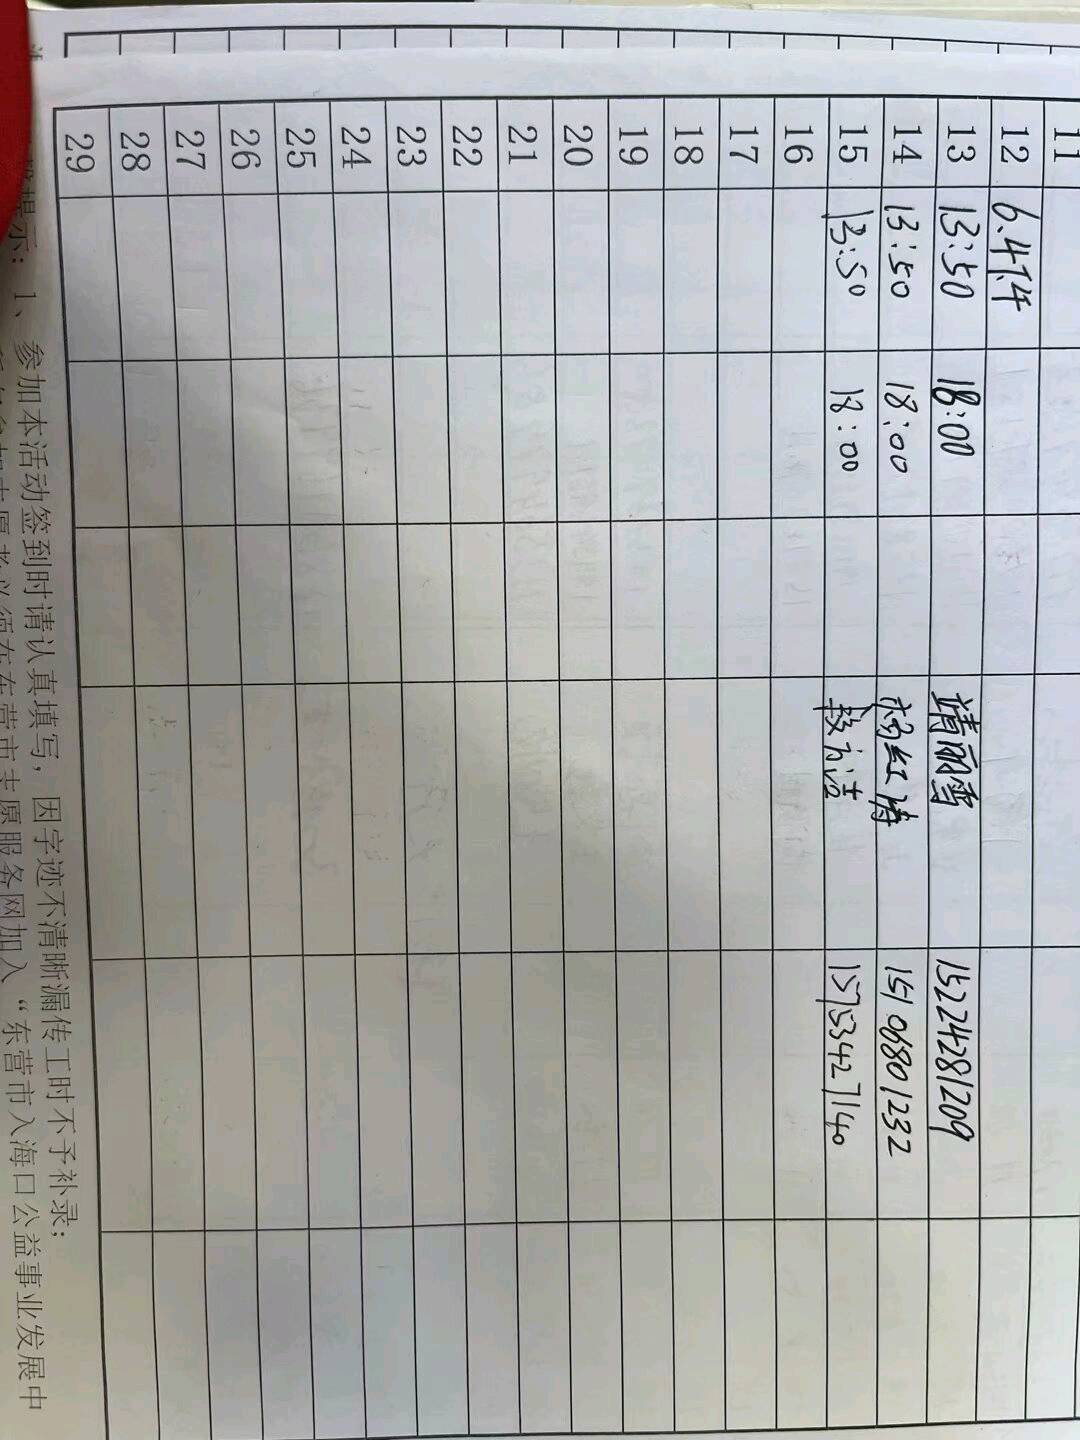 11
12 6.4下午
13 13:50 18:00 靖丽雪 15224281209
14 13:50 18:00 杨红涛 15106801232
15 13:50 18:00 15753427140
16
17
18
19
20
21
22
23
24
25
26
27
28
29
提示：1、参加本活动签到时请认真填写，因字迹不清晰漏传工时不予补录；
志愿者必须在东营市志愿服务网加入“东营市入海口公益事业发展中